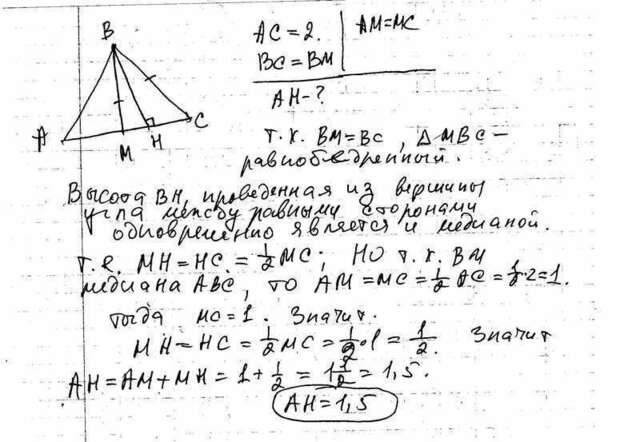 B
A
M
H
C
AC = 2.
AM = MC
BC = BM
AH - ?
Т.к. BM = BC, △ MBC –
равнобедренный.
Высота BH, проведенная из вершины
угла между равными сторонами
одновременно является и медианой.
т.е. MH = HC = 1/2 MC; Но т.к. BM
медиана ABC, то AM = MC = 1/2 AC = 1/2·2 = 1.
тогда MC = 1. Значит.
MH = HC = 1/2 MC = 1/2·1 = 1/2. Значит
AH = AM + MH = 1 + 1/2 = 1 1/2 = 1,5.
AH = 1,5